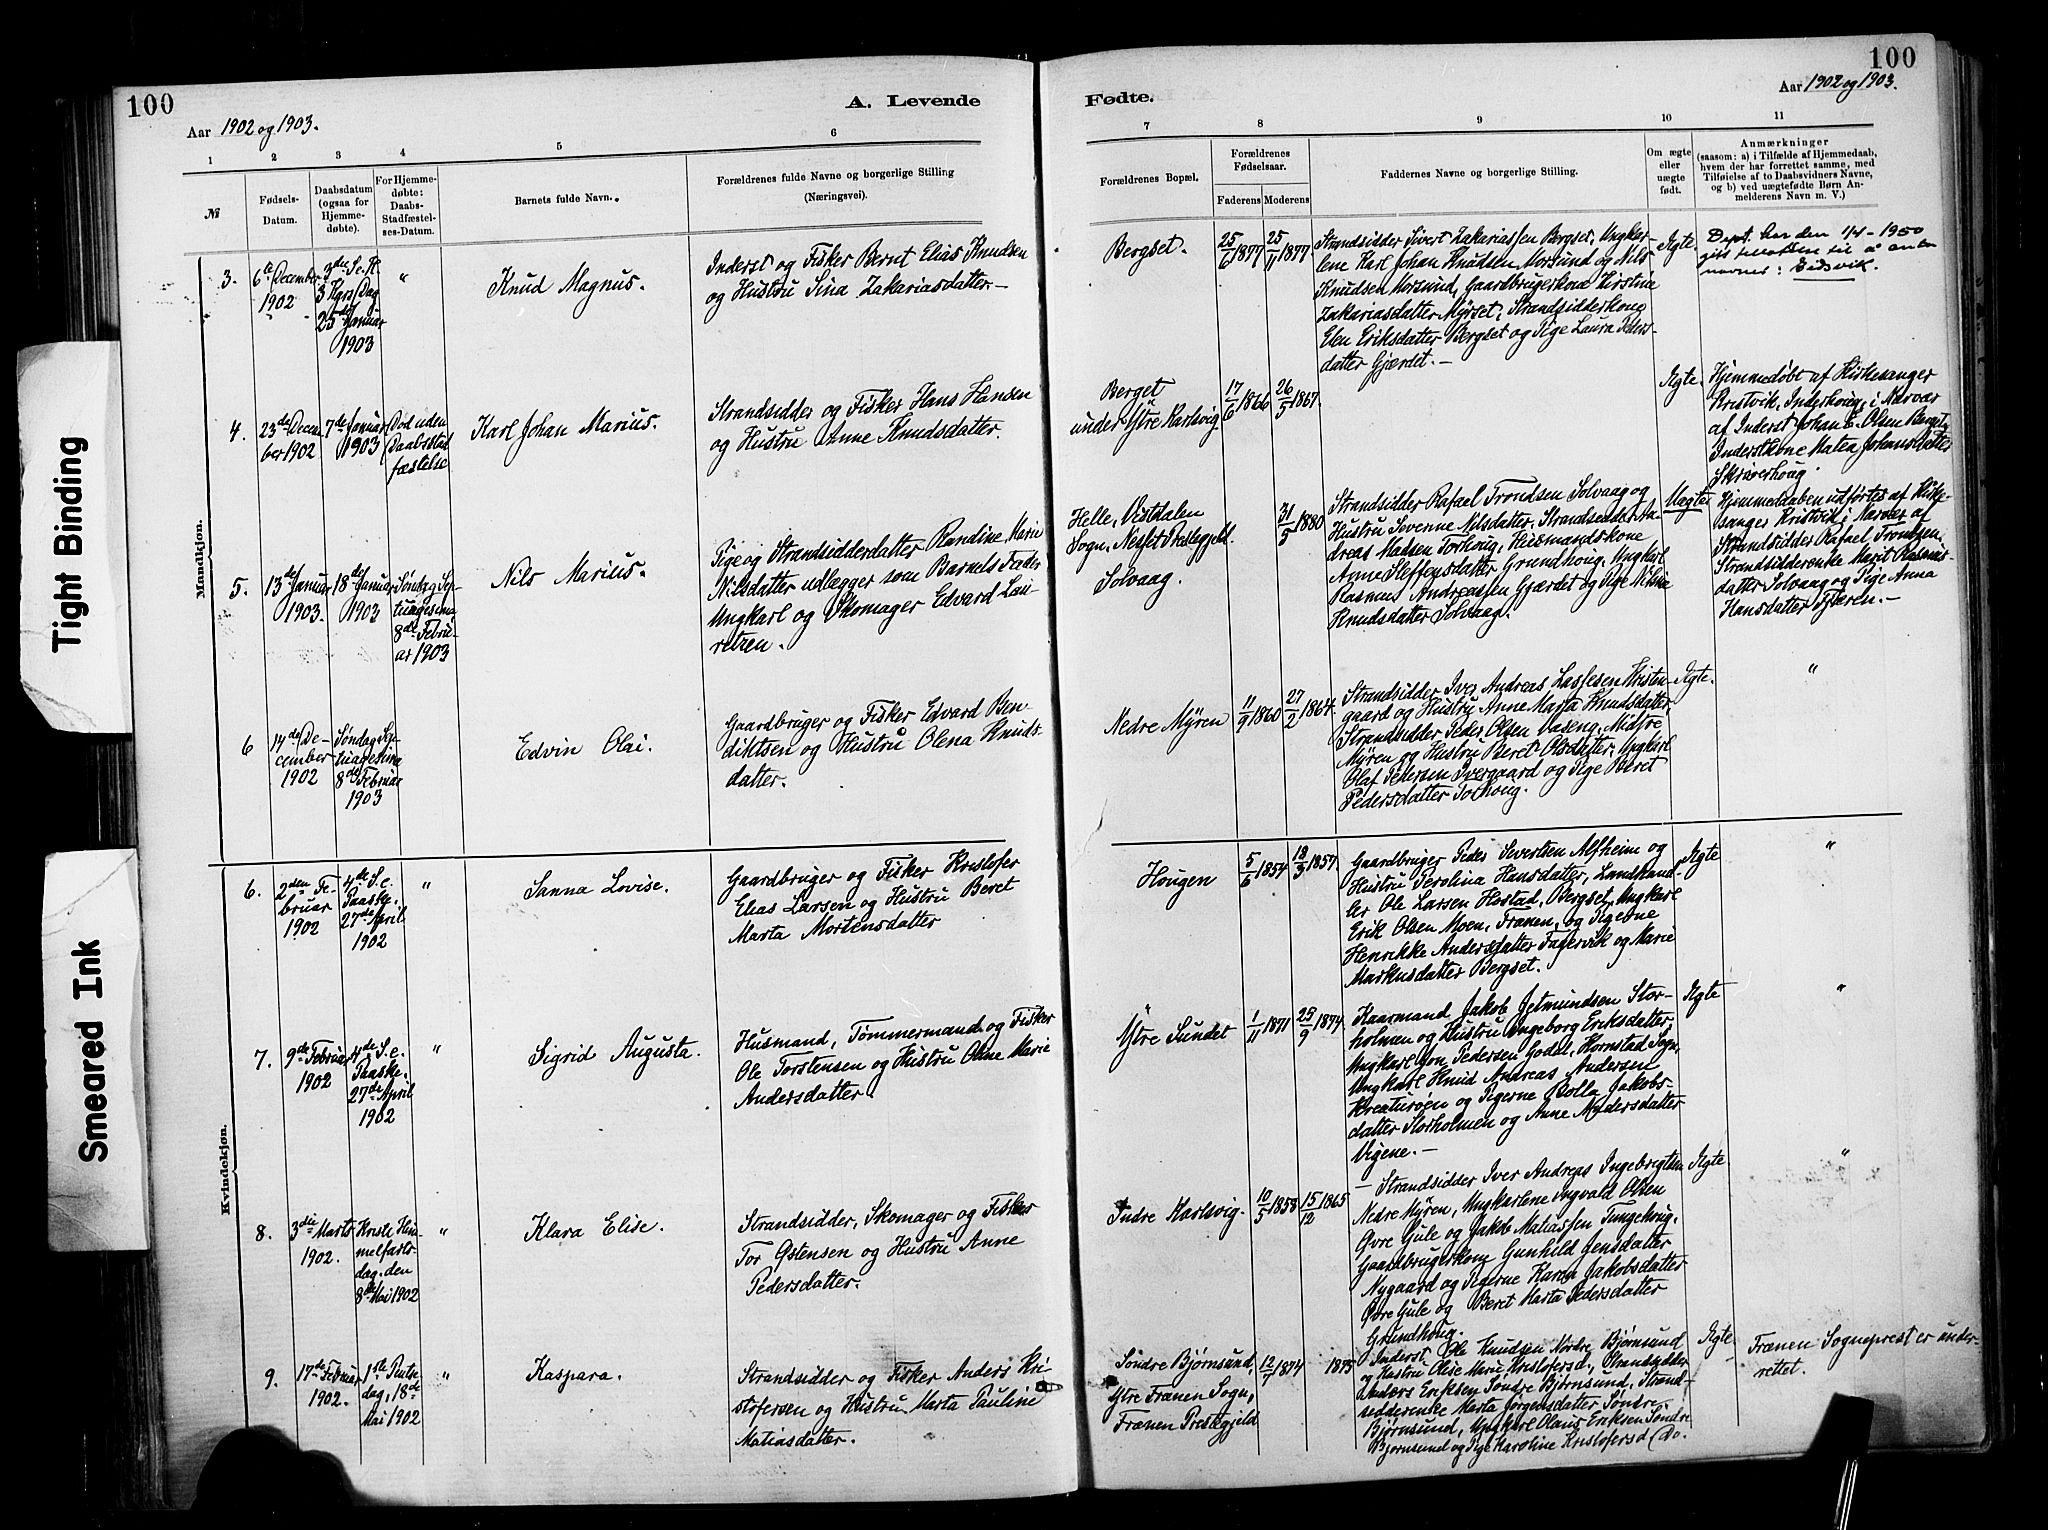 100
A. Levende
Aar 1902 og 1903.
1
2
3
4
5
6
№
Fødsels-
Datum.
Daabsdatum
(ogsaa for
Hjemme-
døbte).
For Hjemme-
døbte:
Daabs-
Stadfæstel-
ses-Datum.
Barnets fulde Navn.
Forældrenes fulde Navne og borgerlige Stilling
(Næringsvei).
Mandkjøn.
3.
6te December
1902
3die S. e. H.
3 Kgrs Dag
25de Januar
1903
"
Knud Magnus.
Inderst og Fisker Bernt Elias Knudsen
og Hustru Sina Zakariasdatter.-
4.
23de Decem
ber 1902
7de Januar
1903
Død uden
Daabsstad
fæstelse
Karl Johan Marius.
Strandsidder og Fisker Hans Hansen
og Hustru Anne Knudsdatter.
5.
13de Januar
1903.
18de Januar
1903
Søndag Sep-
tuagesima
8de Febru-
ar 1903
Nils Marius.
Pige og Strandsidderdatter Randine Marie
Nilsdatter udlægger som Barnets Fader
Ungkarl og Skomager Edvard Lau-
retzen.
6
14de De-
cember
1902
Søndag Sep-
tuagesima
8de Februar
1903
Edvin Olai.
Gaardbruger og Fisker Edvard Ben-
diktsen og Hustru Olena Knuds-
datter.
Kvindekjøn.
6.
2den Fe-
bruar
1902
4de S. e.
Paaske.
27de April
1902
"
Sanna Lovise.
Gaardbruger og Fisker Kristofer
Elias Larsen og Hustru Beret
Marta Mortensdatter
7.
9de Februar
1902
4de S. e.
Paaske.
27de April
1902
"
Sigrid Augusta.
Husmand, Tømmermand og Fisker
Ole Torstensen og Hustru Anne Marie
Andersdatter.
8.
3die Marts
1902.
Kristi Him
melfarts-
dag. den
8de Mai 1902
"
Klara Elise.
Strandsidder, Skomager og Fisker
Tor Østensen og Hustru Anne
Pedersdatter.
9.
17de Februar
1902.
1ste Pintse
dag, 18de
Mai 1902
"
Kaspara.
Strandsidder og Fisker Anders Kri-
stofersen og Hustru Marta Pauline
Matiasdatter.
100
Fødte.
Aar 1902 og 1903.
7
8
9
10
11
Forældrenes Bopæl.
Forældrenes
Fødselsaar.
Faderens
Moderens
Faddernes Navne og borgerlige Stilling.
Om ægte
eller
uægte
født.
Anmærkninger
(saasom: a) i Tilfælde af Hjemmedaab,
hvem der har forrettet samme, med
Tilføielse af to Daabsvidners Navne,
og b) ved uægtefødte Børn An-
melderens Navn m. V.)
Bergset.
25/6 1877
25/11 1877
Strandsidder Sivert Zakariassen Bergset, Ungkar-
lene Karl Johan Knudsen Morsund og Nils
Knudsen Morsund, Gaardbrugerkone Kirstine
Zakariasdatter Myrset, Strandsidderkone
Elen Eriksdatter Bergset og Pige Laura Peders-
datter Gjærdet.-
Ægte.
Dept. har den 1/4 - 1950
gitt til å anta
navnet: Eidsvik.
Berget
under Ytre Karlsvig.
17/6 1866
26/5 1867.
Ægte.
Hjemmedøbt af Kirkesanger
Kristvik, Inderhoug, i Nærvær
af Inderst Johan E. Olsen Berget,
Inderstkone Maten Johansdatter
Skriverhoug.
Helle, Vistdalen
Sogn, Nesset Prestegjeld.
Solvaag.
31/5 1880
Strandsidder Rafael Trondsen Solvaag og
Hustru Severine Nilsdatter, Strandsidder An-
dreas Madsen Torhoug, Husmandskone
Anne Steffensdatter Grundhoug, Ungkarl
Rasmus Andreassen Gjærdet og Pige Nikka
Knudsdatter Solvaag.
Uægte
Hjemmedaaben udførtes af Kirke-
sanger Kristvik i Nærvær af
Strandsidder Rafael Trondsen,
Strandsidderenke Marit Rasmus-
datter Solvaag og Pige Anna
Hansdatter Tjæren.-
Nedre Myren
11/9 1860
27/2 1864.
Strandsidder Iver Andreas Lassesen Kristen-
gaard og Hustru Anne Marta Knudsdatter,
Strandsidder Peder Olsen Vaseng, Midtre
Myren og Hustru Beret Olsdatter, Ungkarl
Olaf Pedersen Ivergaard og Pige Beret
Pedersdatter Torhoug.
Ægte.
"
Hougen
5/6 1854
18/3 1857.
Gaardbruger Peder Sivertsen Alfheim og
Hustru Perolina Hansdatter, Landhand-
ler Ole Larsen Hostad, Bergset, Ungkarl
Erik Olsen Moen, Frænen, og Pigerne
Henrikke Andersdatter Fagervik og Marie
Markusdatter Bergset.
Ægte
"
Ytre Sundet
1/11 1871
25/9 1874
Kaarmand Jakob Jetmundsen Stor-
holmen og Hustru Ingeborg Eriksdatter,
Ungkarl Jon Pedersen Godal, Kornstad Sogn,
Ungkarl Knud Andreas Andersen
Kreaturøen og Pigerne Bolla Jakobs-
datter Storholmen og Anne Andersdatter
Vigene.-
Ægte
"
Indre Karlsvig.
10/5 1858
15/12 1865
- Strandsidder Iver Andreas Ingebrigtsen
Nedre Myren, Ungkarlene Ingvald Olsen
Øvre Gule og Jakob Matiassen Tungehoug,
Gaardbrugerkone Gunhild Jensdatter
Nygaard og Pigerne Karen Jakobsdatter
Øvre Gule og Beret Marta Pedersdatter
Grundhoug.
Ægte.
"
Søndre Bjørnsund,
Ytre Frænen Sogn,
Frænen Prestegjeld
12/7 1874
1875
Inderst Ole Knudsen Nordre Bjørnsund
og Hustru Olise Marie Kristofersd., Strandsidder
Anders Eriksen Søndre Bjørnsund, Strand-
sidderenke Marta Jørgensdatter Søndre
Bjørnsund, Ungkarl Olaus Eriksen Søndre
Bjørnsund og Pige Karoline Kristofersd (Do.
Ægte.
Frænen Sogneprest er under-
rettet.
Tight Binding
Smeared Ink